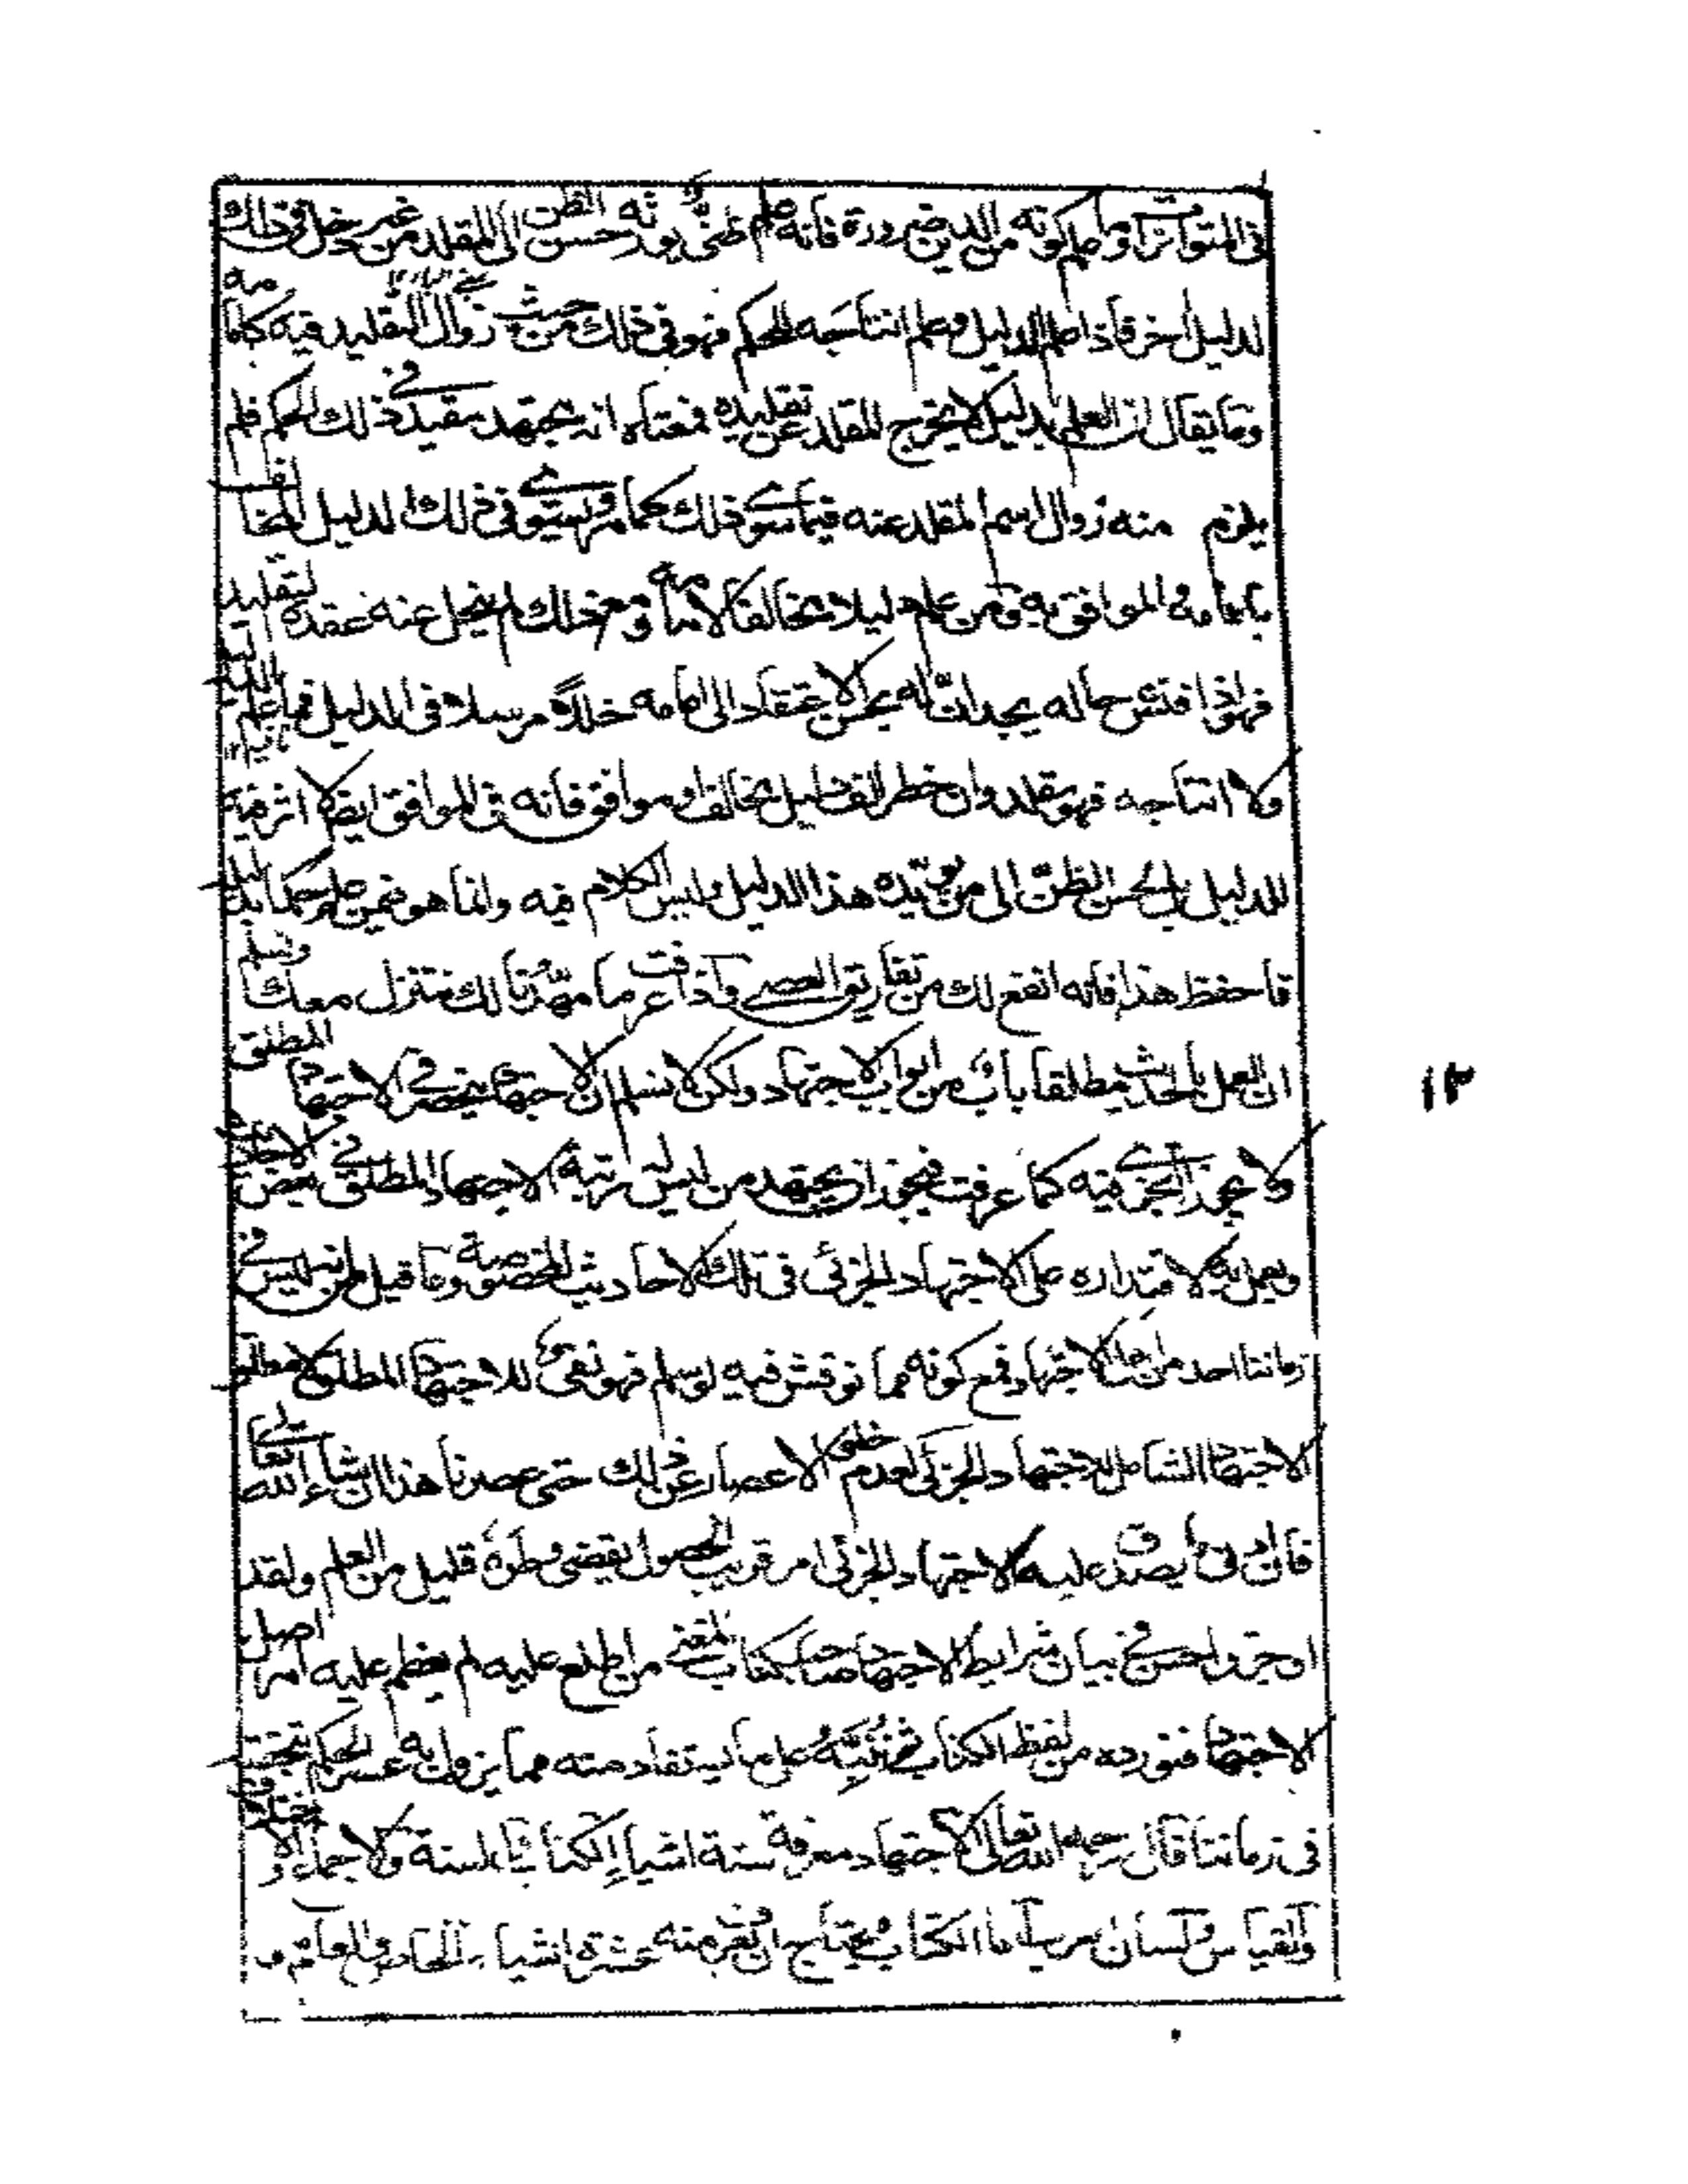 في المتواتر أو ما علم كونه من الدين ضرورة فانه علم ظنّي يورثه حسن الظن الى المقلد من غير دخل في ذلك
لدليل أخر فاذا علم الدليل وعلم انتاجه للحكم فهو في ذلك من حيث زوال التقليد فيه كامامه
وما يقال ان العلم بدليل لا يخرج المقلد عن تقليده فمعناه انه مجتهد مقيد في ذلك الحكم فلم
يلزم منه زوال اسم المقلد عنه فيما سوى ذلك كما مر ويستوي في ذلك الدليل المخالف
بامامه والموافق به ومن علم دليلا مخالفا لامامه ومع ذلك لم ينحل عنه عقدة التقليد
فهو اذا فتش حاله يجد ان له بحسن الاعتقاد الى امامه خللا مرسلا في الدليل فما علم الدليل
ولا انتاجه فهو مقلد وان خطر الف دليل مخالف او موافق فانه في الموافق ايضا لا اثر فيه
للدليل بل لحسن الظن الى من يؤيده هذا الدليل وليس الكلام فيه وانما هو فيمن علم حكما بدليل
فاحفظ هذا فانه انفع لك من تفاريق العصى واذا عرفت ما مهّدنا لك فنتنزل معك ونسلم
ان العمل بالحديث مطلقا باب من ابواب الاجتهاد ولكن لا نسلم ان الاجتهاد ينحصر في الاجتهاد المطلق
ولا يجوز التجزي فيه كما عرفت فيجوز ان يجتهد من ليس له رتبة الاجتهاد المطلق في بعض الاحاديث
ويعمل به لاقتداره على الاجتهاد الجزئي في تلك الاحاديث المخصوصة وما قيل من انه ليس في
زماننا احد من اهل الاجتهاد فمع كونه مما نوقش فيه لو سلم فهو نفي للاجتهاد المطلق لا مطلق
الاجتهاد الشامل للاجتهاد الجزئي لعدم خلو الاعصار عن ذلك حتى عصرنا هذا ان شاء الله تعالى
فان ادنى ما يصدق عليه الاجتهاد الجزئي امر قريب الحصول يقضى وطره قليل من العلم ولقد
اوجز واحسن في بيان شرايط الاجتهاد صاحب كتاب المغني من اطلع عليه لم يعظم عليه امر اصل
الاجتهاد فنورده من لفظ الكتاب ثم ننبّه على ما يستفاد منه مما يزول به عسر الحكم بتحققه
في زماننا قال رحمه الله تعالى الاجتهاد معرفة ستة اشياء الكتاب والسنة والاجماع والاختلاف
والقياس ولسان العرب اما الكتاب فيحتاج ان يعرف منه عشرة اشياء الخاص والعام و
١٣